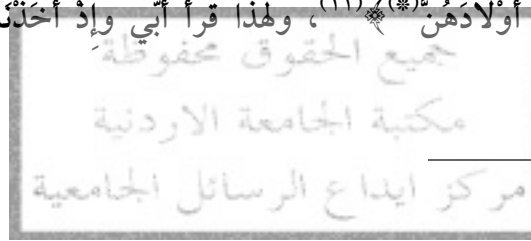 أَوْلَادَهُنَّ(*)﴾(١١)، ولهذا قرأ أُبّي وإِذْ أَخَذْنَ
جميع الحقوق محفوظة
مكتبة الجامعة الاردنية
مركز ايداع الرسائل الجامعية